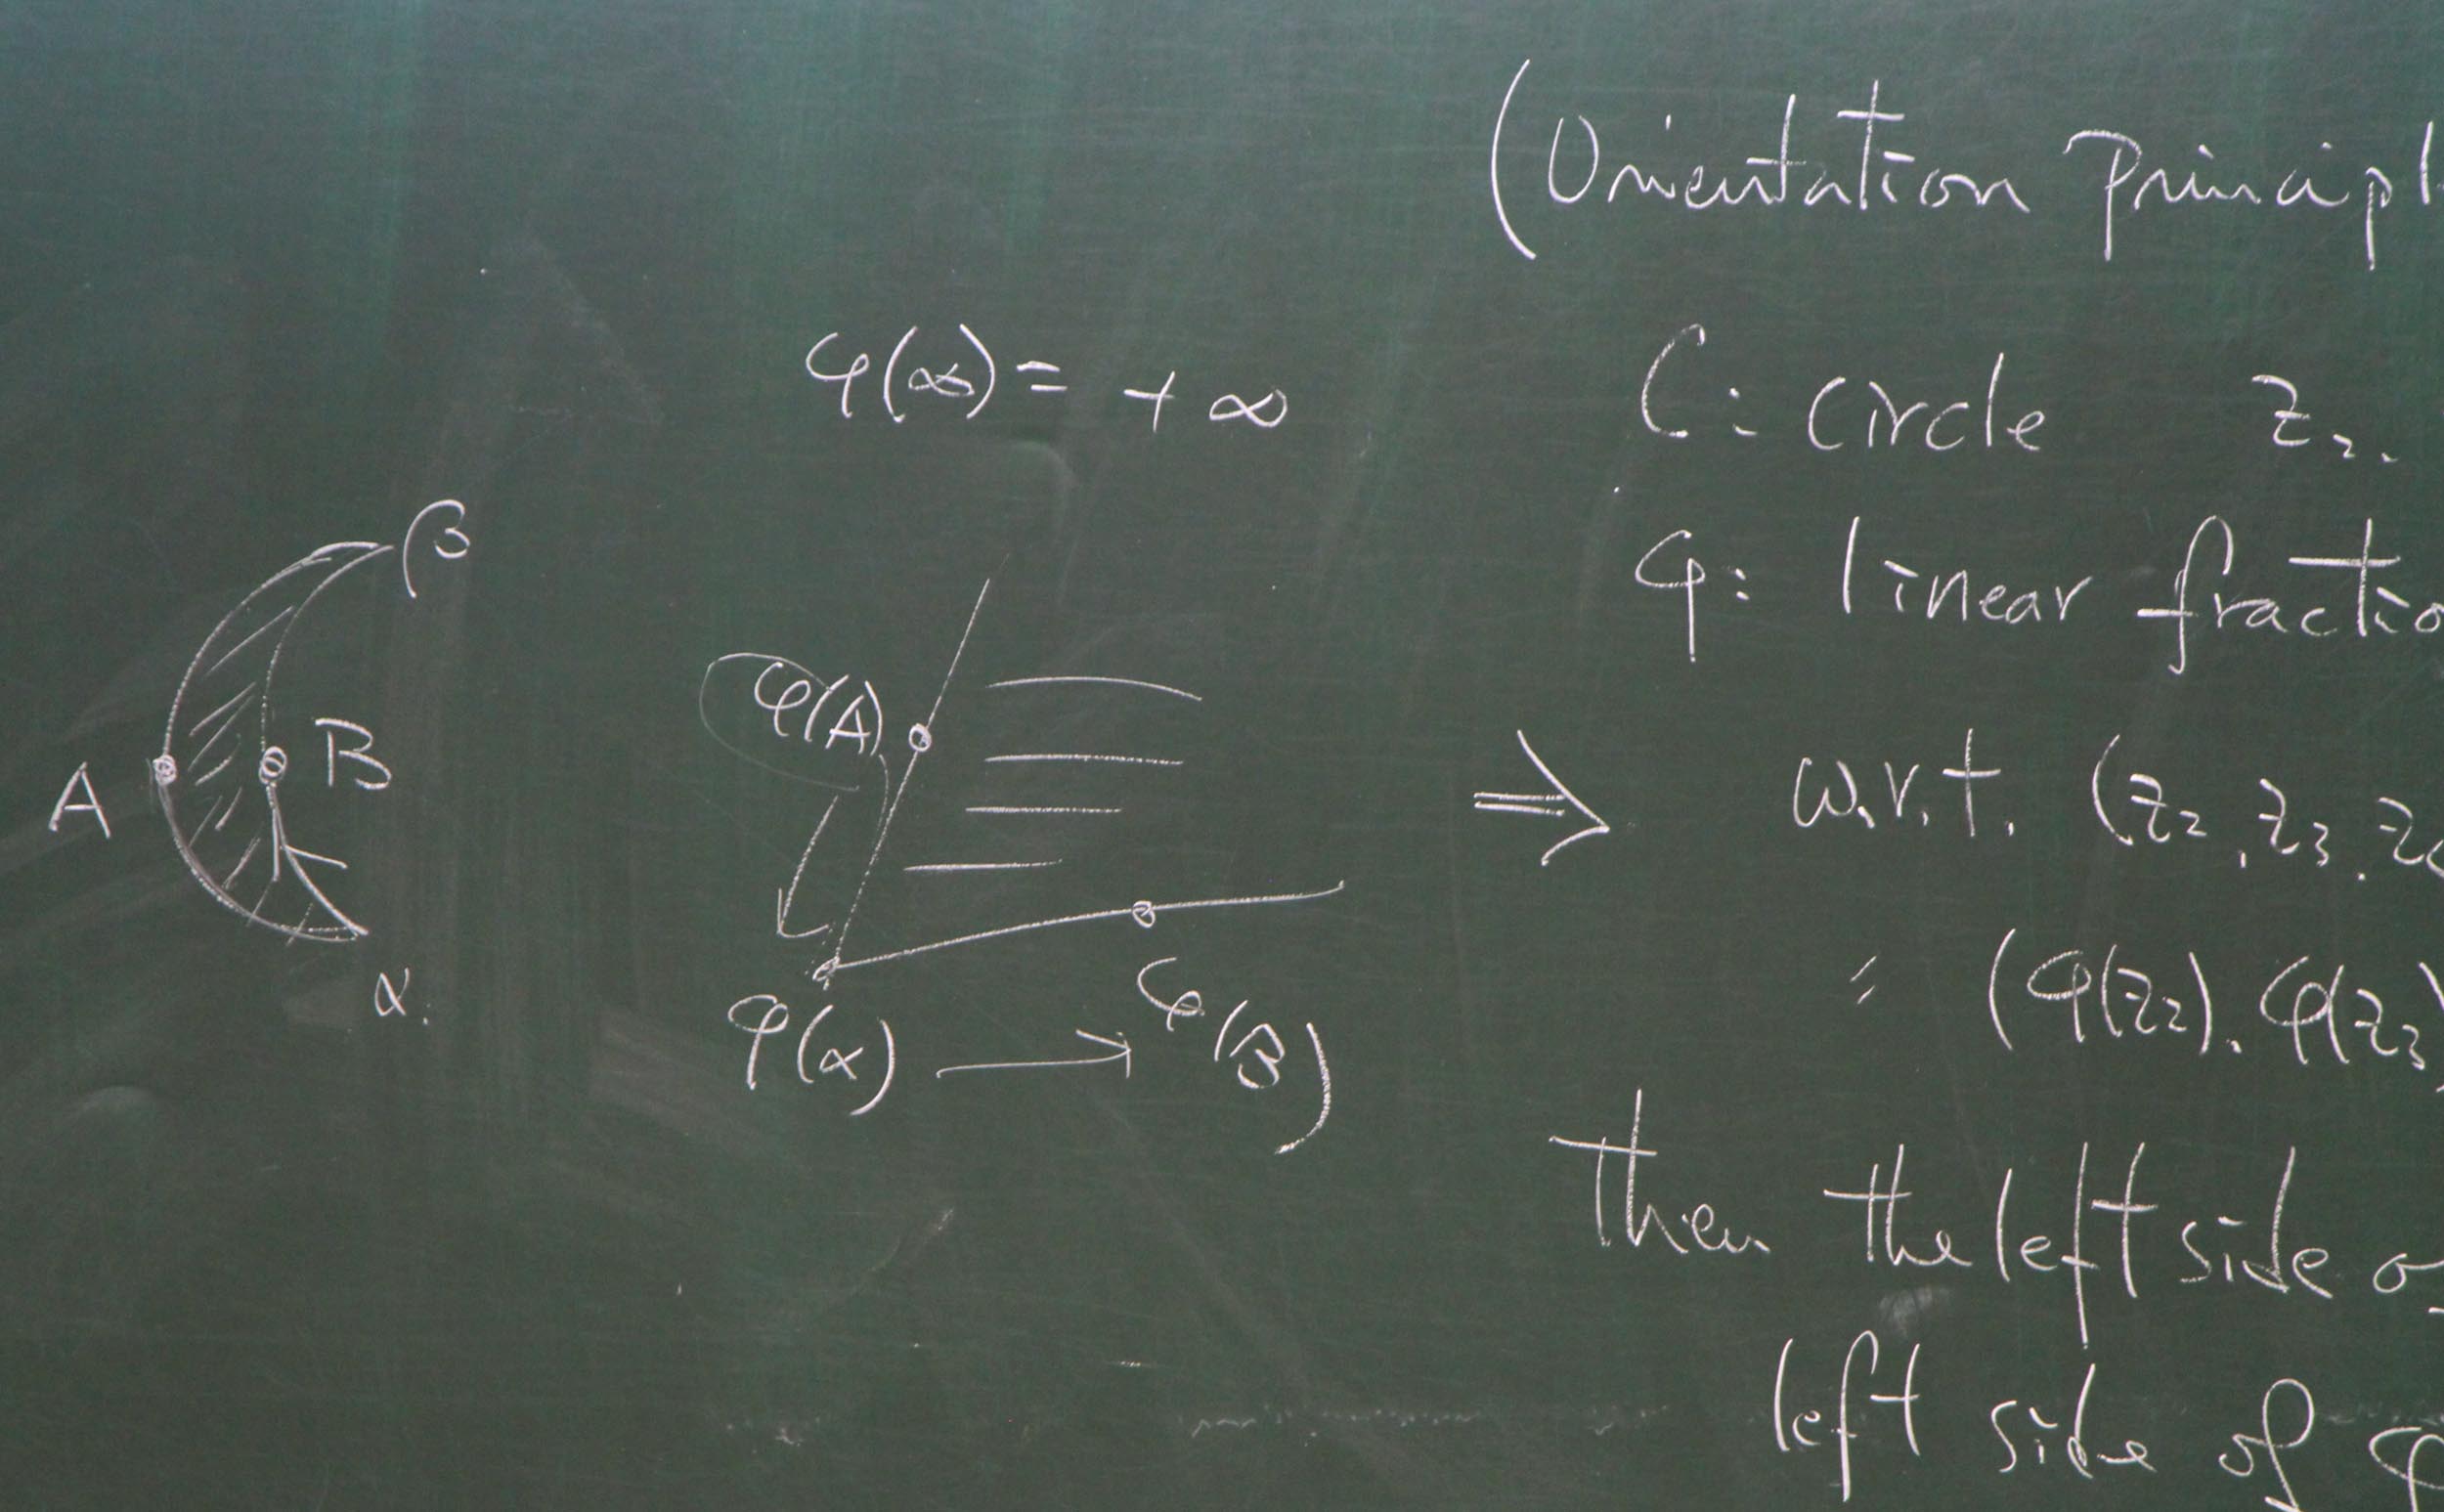 (Orientation Principl
φ(∞) = + ∞
C: circle z₂.
φ: linear fractio
β
A
B
α.
φ(A)
φ(α) ⟶ φ(B)
⇒ w.r.t. (z₂, z₃, z₄
〃 (φ(z₂), φ(z₃)
then the left side o
left side of φ